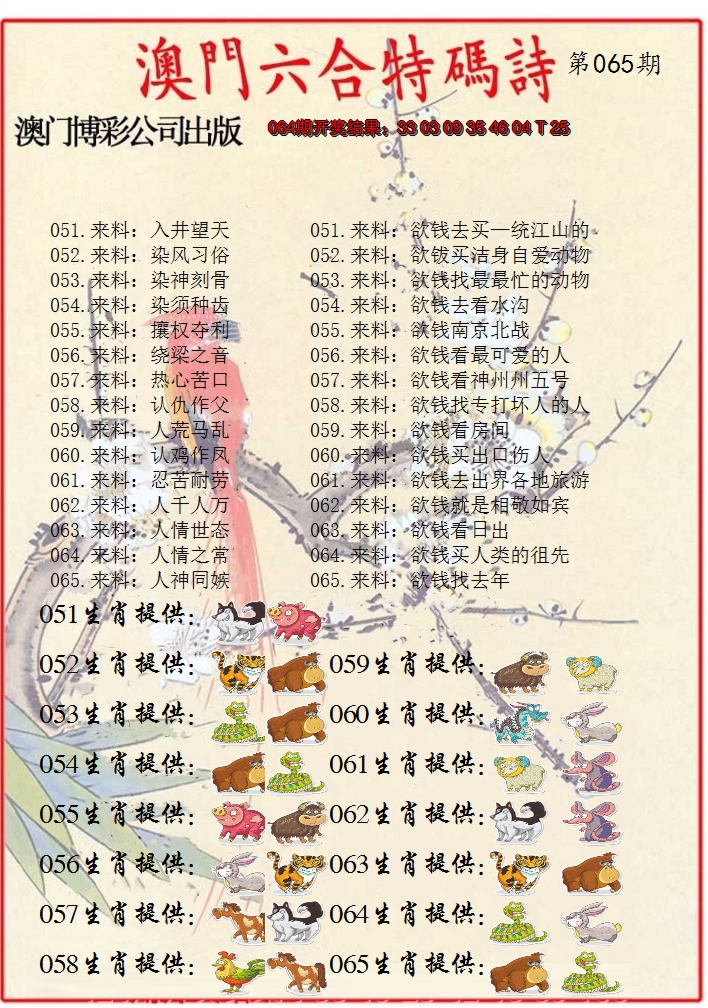 澳門六合特碼詩 第065期
澳门博彩公司出版 064期开奖结果：33 03 09 35 46 04 T 25
051.来料：入井望天 051.来料：欲钱去买一统江山的
052.来料：染风习俗 052.来料：欲钹买洁身自爱动物
053.来料：染神刻骨 053.来料：欲钱找最最忙的动物
054.来料：染须种齿 054.来料：欲钱去看水沟
055.来料：攘权夺利 055.来料：欲钱南京北战
056.来料：绕梁之音 056.来料：欲钱看最可爱的人
057.来料：热心苦口 057.来料：欲钱看神州州五号
058.来料：认仇作父 058.来料：欲钱找专打坏人的人
059.来料：人荒马乱 059.来料：欲钱看房间
060.来料：认鸡作凤 060.来料：欲钱买出口伤人
061.来料：忍苦耐劳 061.来料：欲钱去出界各地旅游
062.来料：人千人万 062.来料：欲钱就是相敬如宾
063.来料：人情世态 063.来料：欲钱看日出
064.来料：人情之常 064.来料：欲钱买人类的祖先
065.来料：人神同嫉 065.来料：欲钱找去年
051生肖提供：
052生肖提供： 059生肖提供：
053生肖提供： 060生肖提供：
054生肖提供： 061生肖提供：
055生肖提供： 062生肖提供：
056生肖提供： 063生肖提供：
057生肖提供： 064生肖提供：
058生肖提供： 065生肖提供：